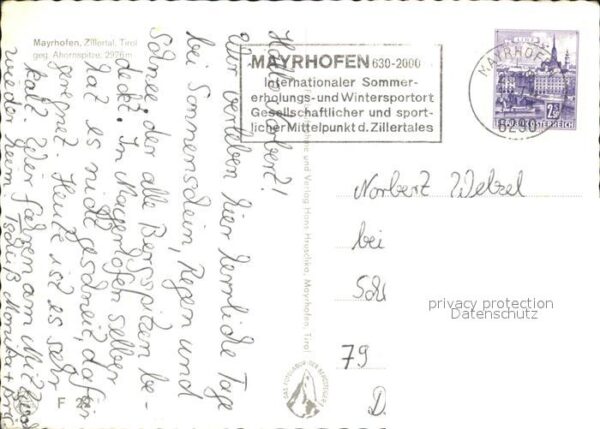 Mayrhofen, Zillertal, Tirol
geg. Ahornspitze, 2976 m
MAYRHOFEN 630-2000
Internationaler Sommer-
erholungs- und Wintersportort
Gesellschaftlicher und sport-
licher Mittelpunkt d. Zillertales
MAYRHOFEN
6290
LINZ
REPUBLIK ÖSTERREICH
Hallo Norbert!
Wir verleben hier herrliche Tage
bei Sonnenschein, Regen und
Schnee, der alle Bergspitzen be-
deckt. In Mayerhofen selber
hat es nicht geschneit, dafür
geregnet. Heute ist es sehr
kalt. Wir fahren am
wieder heim
Tschüß Monika +
und Verlag Hans Hruschka, Mayrhofen, Tirol
Norbert Wetzel
bei
79
D.
privacy protection
Datenschutz
F